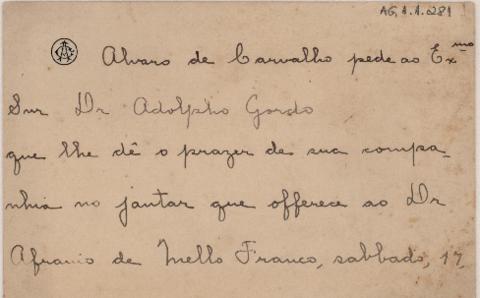 AG.A.A.281
Alvaro de Carvalho pede ao Exmo
Snr Dr Adolpho Gordo
que lhe dê o prazer de sua compa-
nhia no jantar que offerece ao Dr
Afranio de Mello Franco, sabbado, 17,